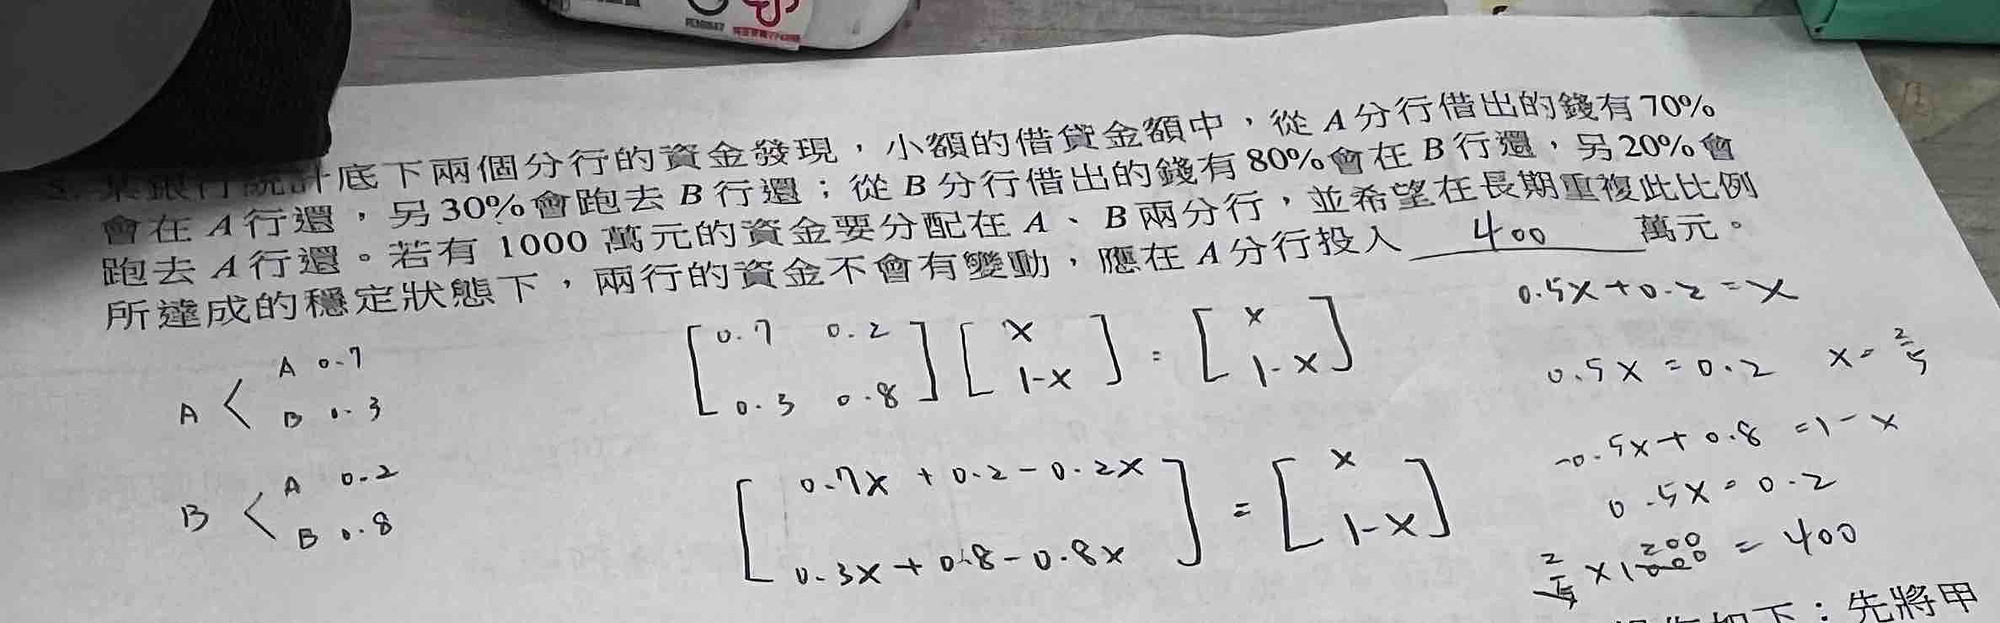 某銀行統計底下兩個分行的資金發現，小額的借貸金額中，從A分行借出的錢有70%
會在A行還，另30%會跑去B行還；從B分行借出的錢有80%會在B行還，另20%會
跑去A行還。若有1000萬元的資金要分配在A、B兩分行，並希望在長期重複此比例
所達成的穩定狀態下，兩行的資金不會有變動，應在A分行投入 400 萬元。
A < A 0.7
B 0.3
B < A 0.2
B 0.8
[0.7 0.2
0.3 0.8] [x
1-x] = [x
1-x]
[0.7x + 0.2 - 0.2x
0.3x + 0.8 - 0.8x] = [x
1-x]
0.5x + 0.2 = x
0.5x = 0.2 x = 2/5
-0.5x + 0.8 = 1 - x
0.5x = 0.2
2/5 × 1000 200 = 400
如下：先將甲